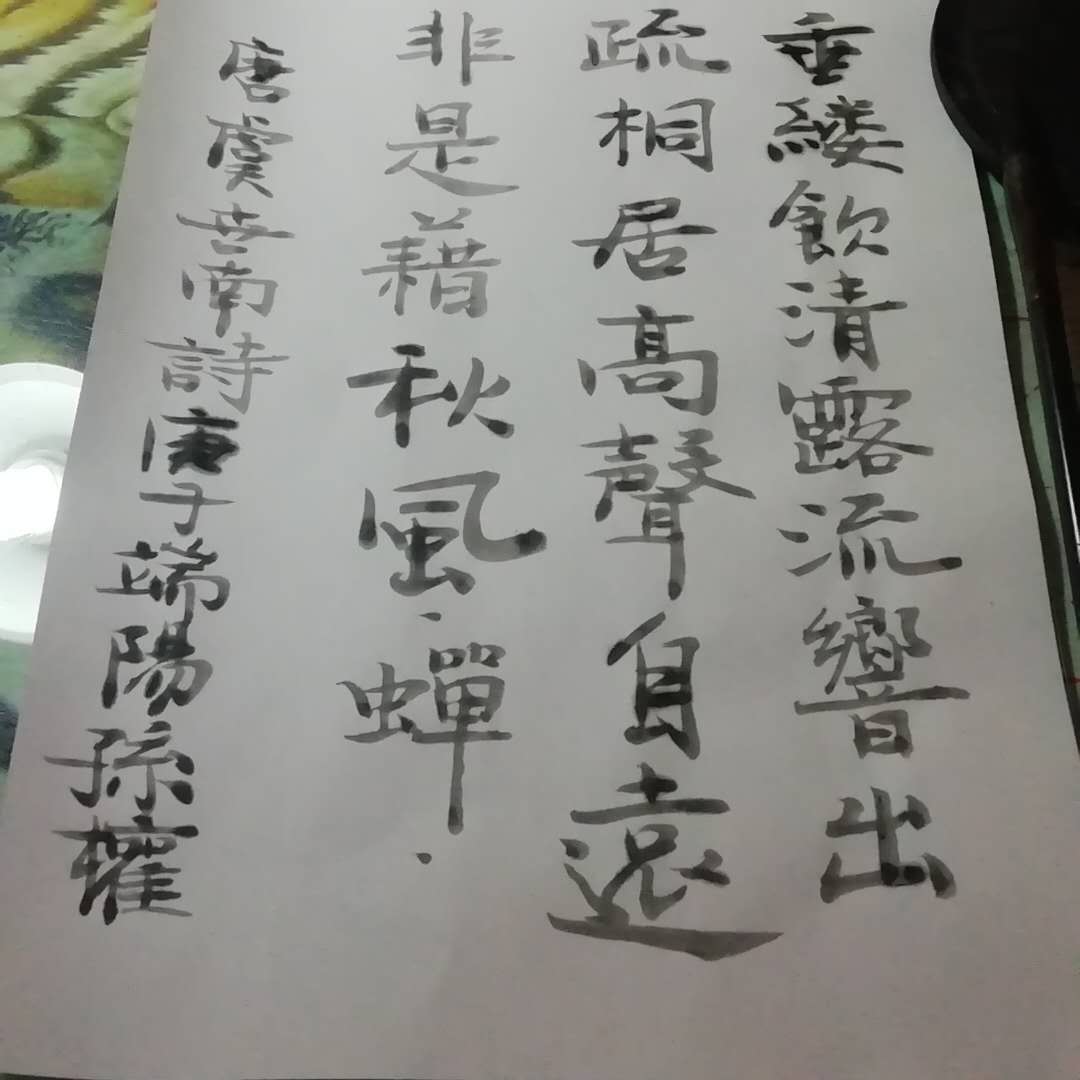 垂緌飲清露流響出
疏桐居高聲自遠
非是藉秋風·蟬·
唐虞世南詩庚子端陽孫權